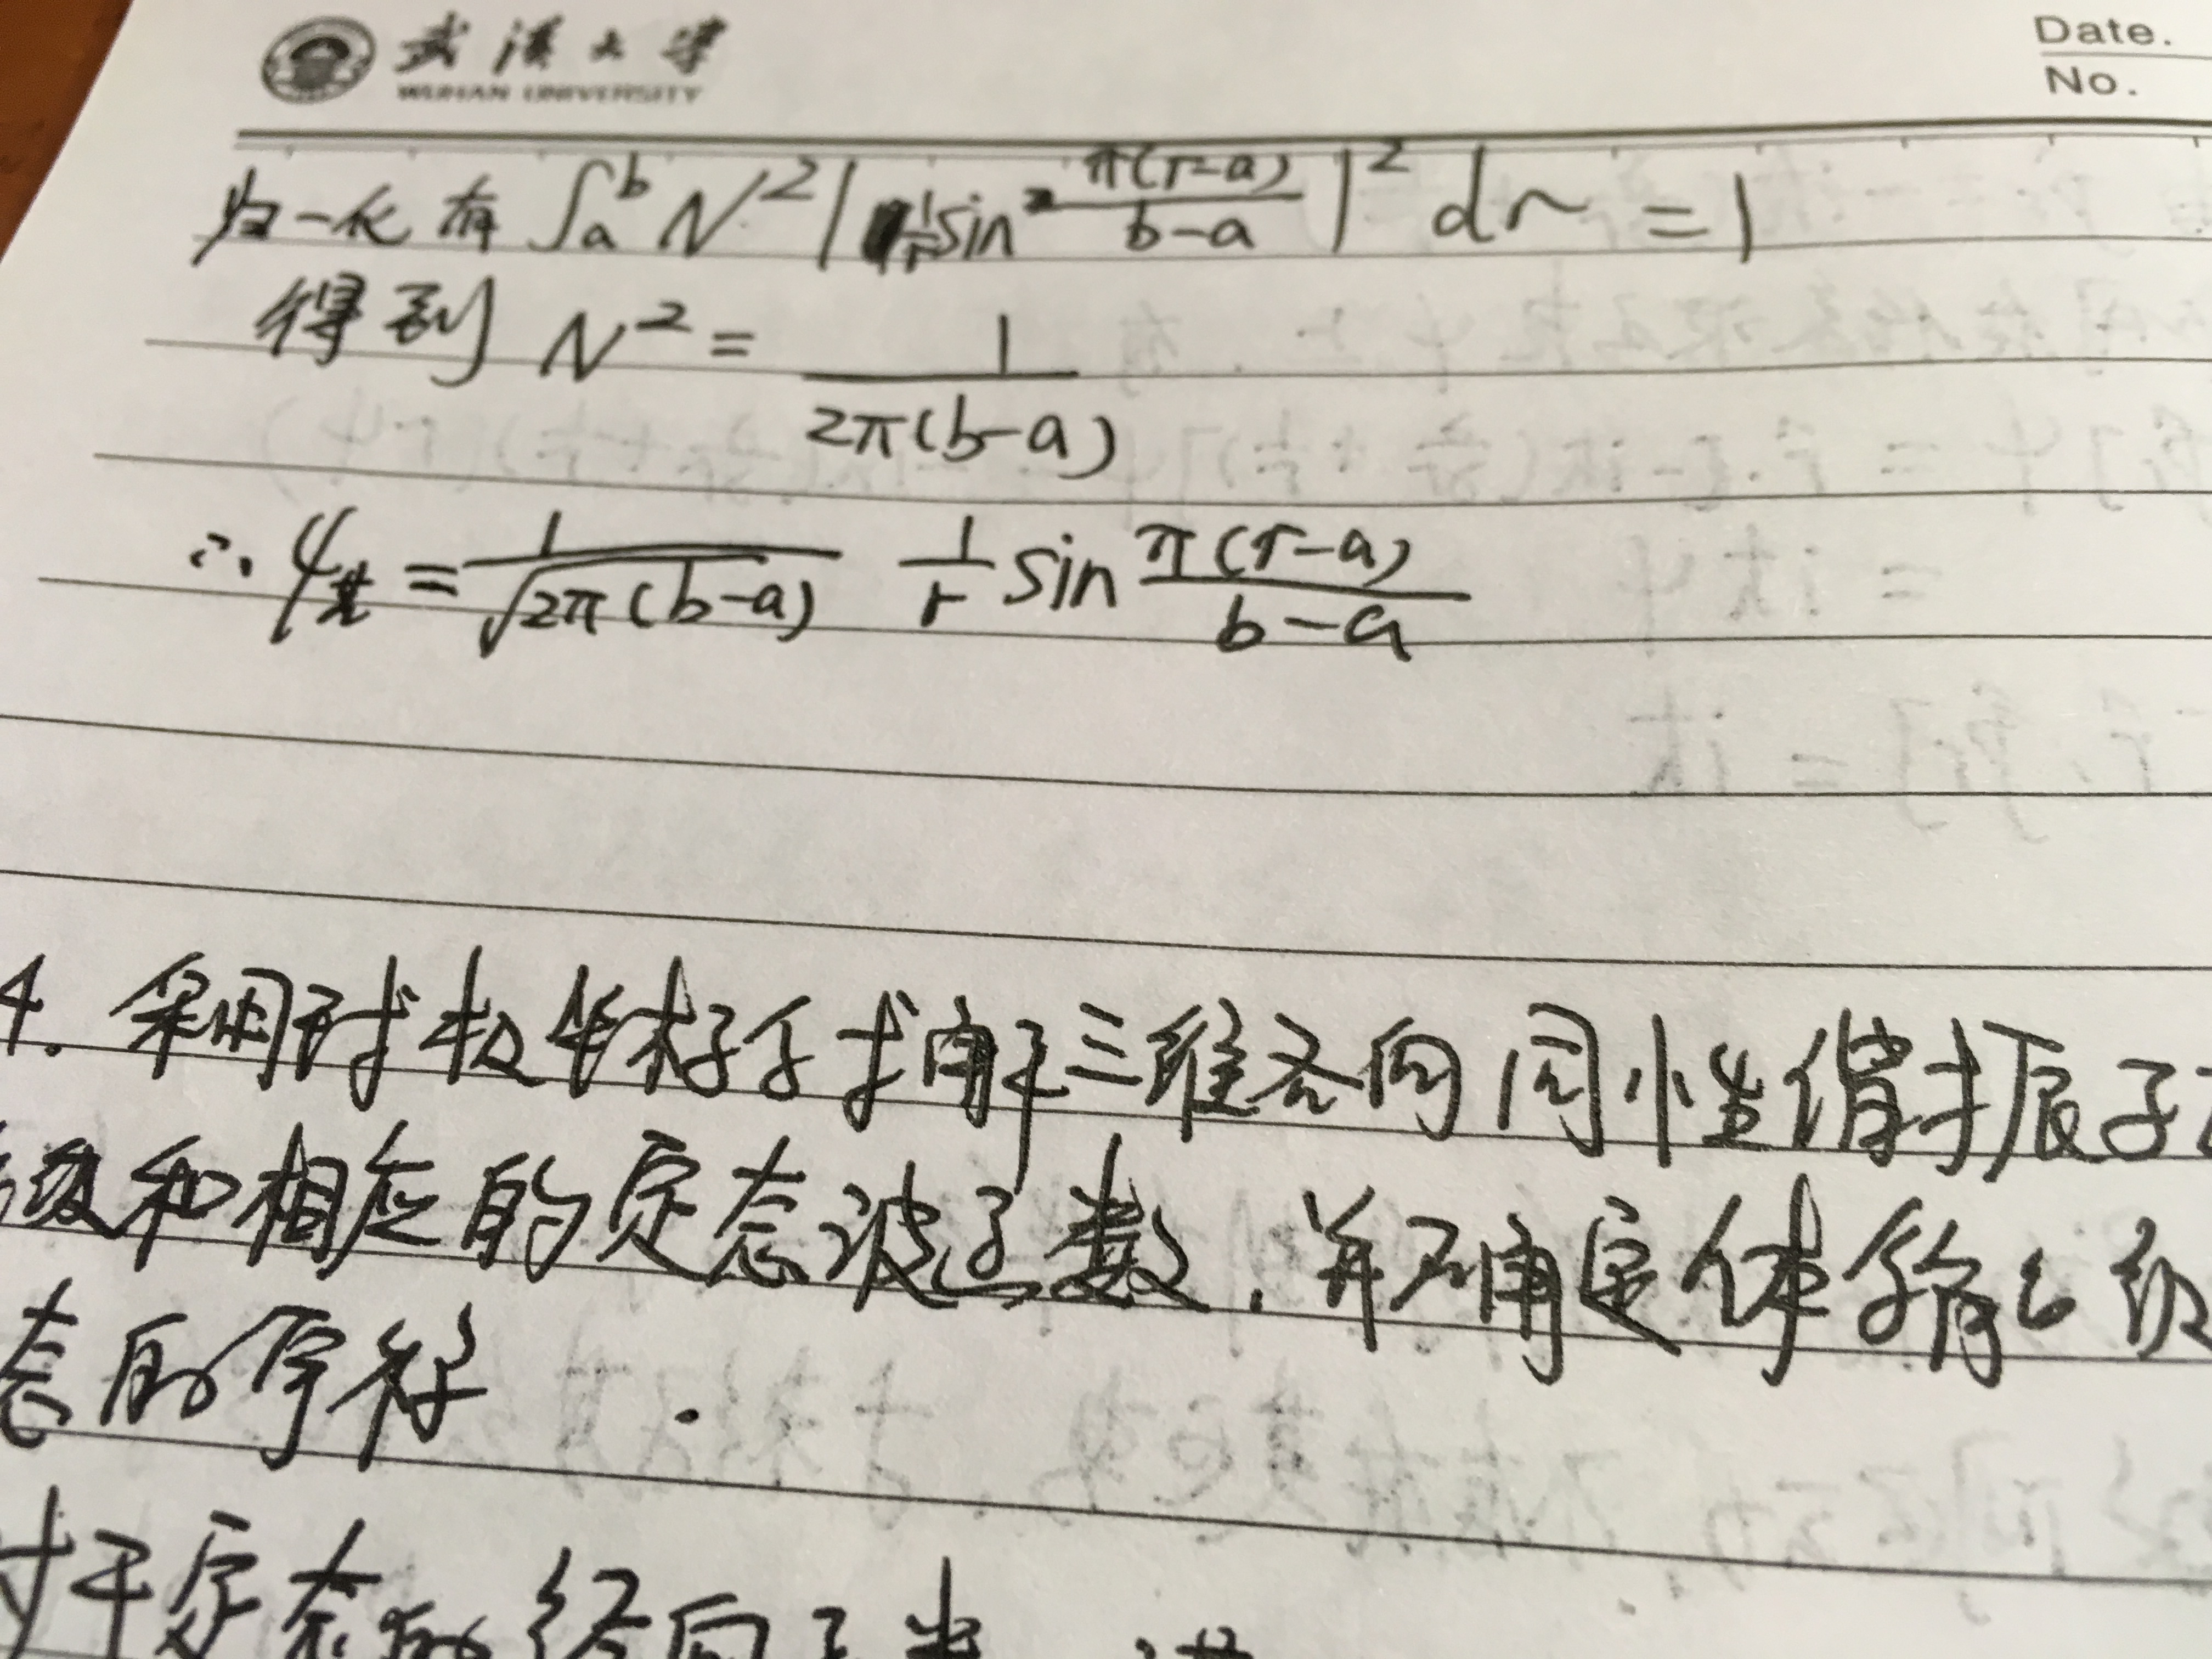 武漢大學
WUHAN UNIVERSITY
Date.
No.
归一化有 ∫ₐᵇ N² | 1/r sin² π(r-a)/(b-a) |² dr = 1
得到 N² = 1/(2π(b-a))
∴ ψ基 = 1/√(2π(b-a)) 1/r sin π(r-a)/(b-a)
4. 采用球极坐标系求解三维各向同性谐振子
级和相应的定态波函数，并确定体系能级
态的宇称.
对于定态的径向